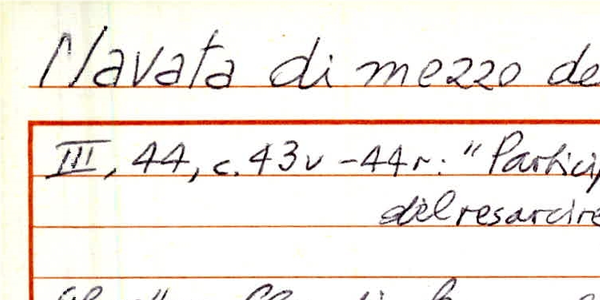 Navata di mezzo de
III, 44, c. 43v - 44r: "Particip
del resarcire